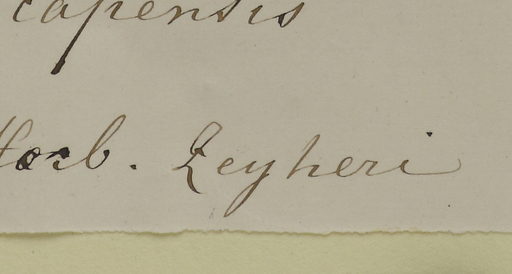 capensis
Herb. Zeyheri